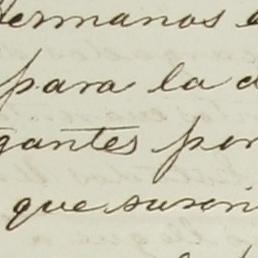 hermanos
para la
gantes por
que suscri